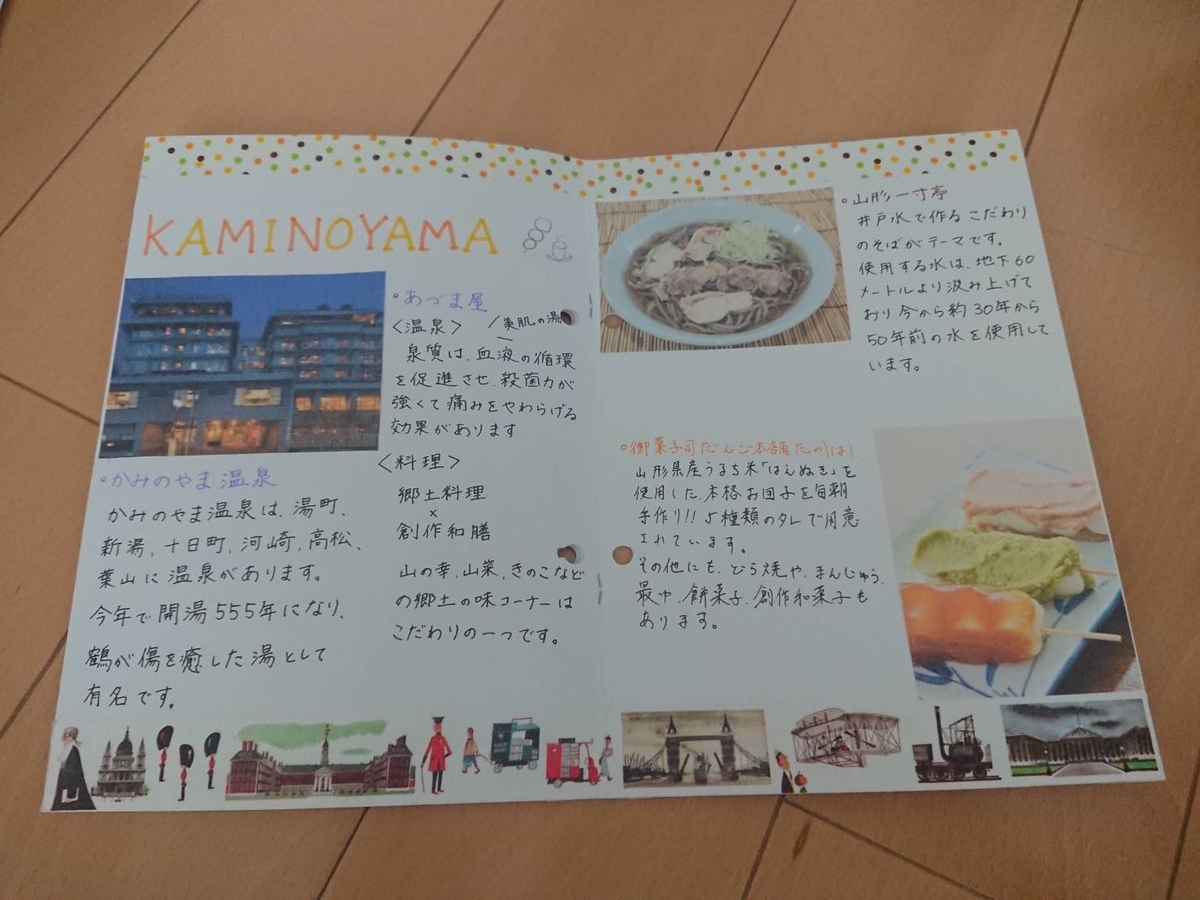 KAMINOYAMA
・かみのやま温泉
かみのやま温泉は、湯町、
新湯、十日町、河崎、高松、
葉山に温泉があります。
今年で開湯555年になり、
鶴が傷を癒した湯として
有名です。
・あづま屋
〈温泉〉 /美肌の湯
泉質は、血液の循環
を促進させ、殺菌力が
強くて痛みをやわらげる
効果があります
〈料理〉
郷土料理
×
創作和膳
山の幸、山菜、きのこなど
の郷土の味コーナーは
こだわりの一つです。
・山形一寸亭
井戸水で作るこだわり
のそばがテーマです。
使用する水は、地下60
メートルより汲み上げて
おり今から約30年から
50年前の水を使用して
います。
・御菓子司だんご本舗たかはし
山形県産うるち米「はえぬき」を
使用した、本格お団子を毎朝
手作り!!5種類のタレで用意
されています。
その他にも、どら焼や、まんじゅう、
最中、餅菓子、創作和菓子も
あります。